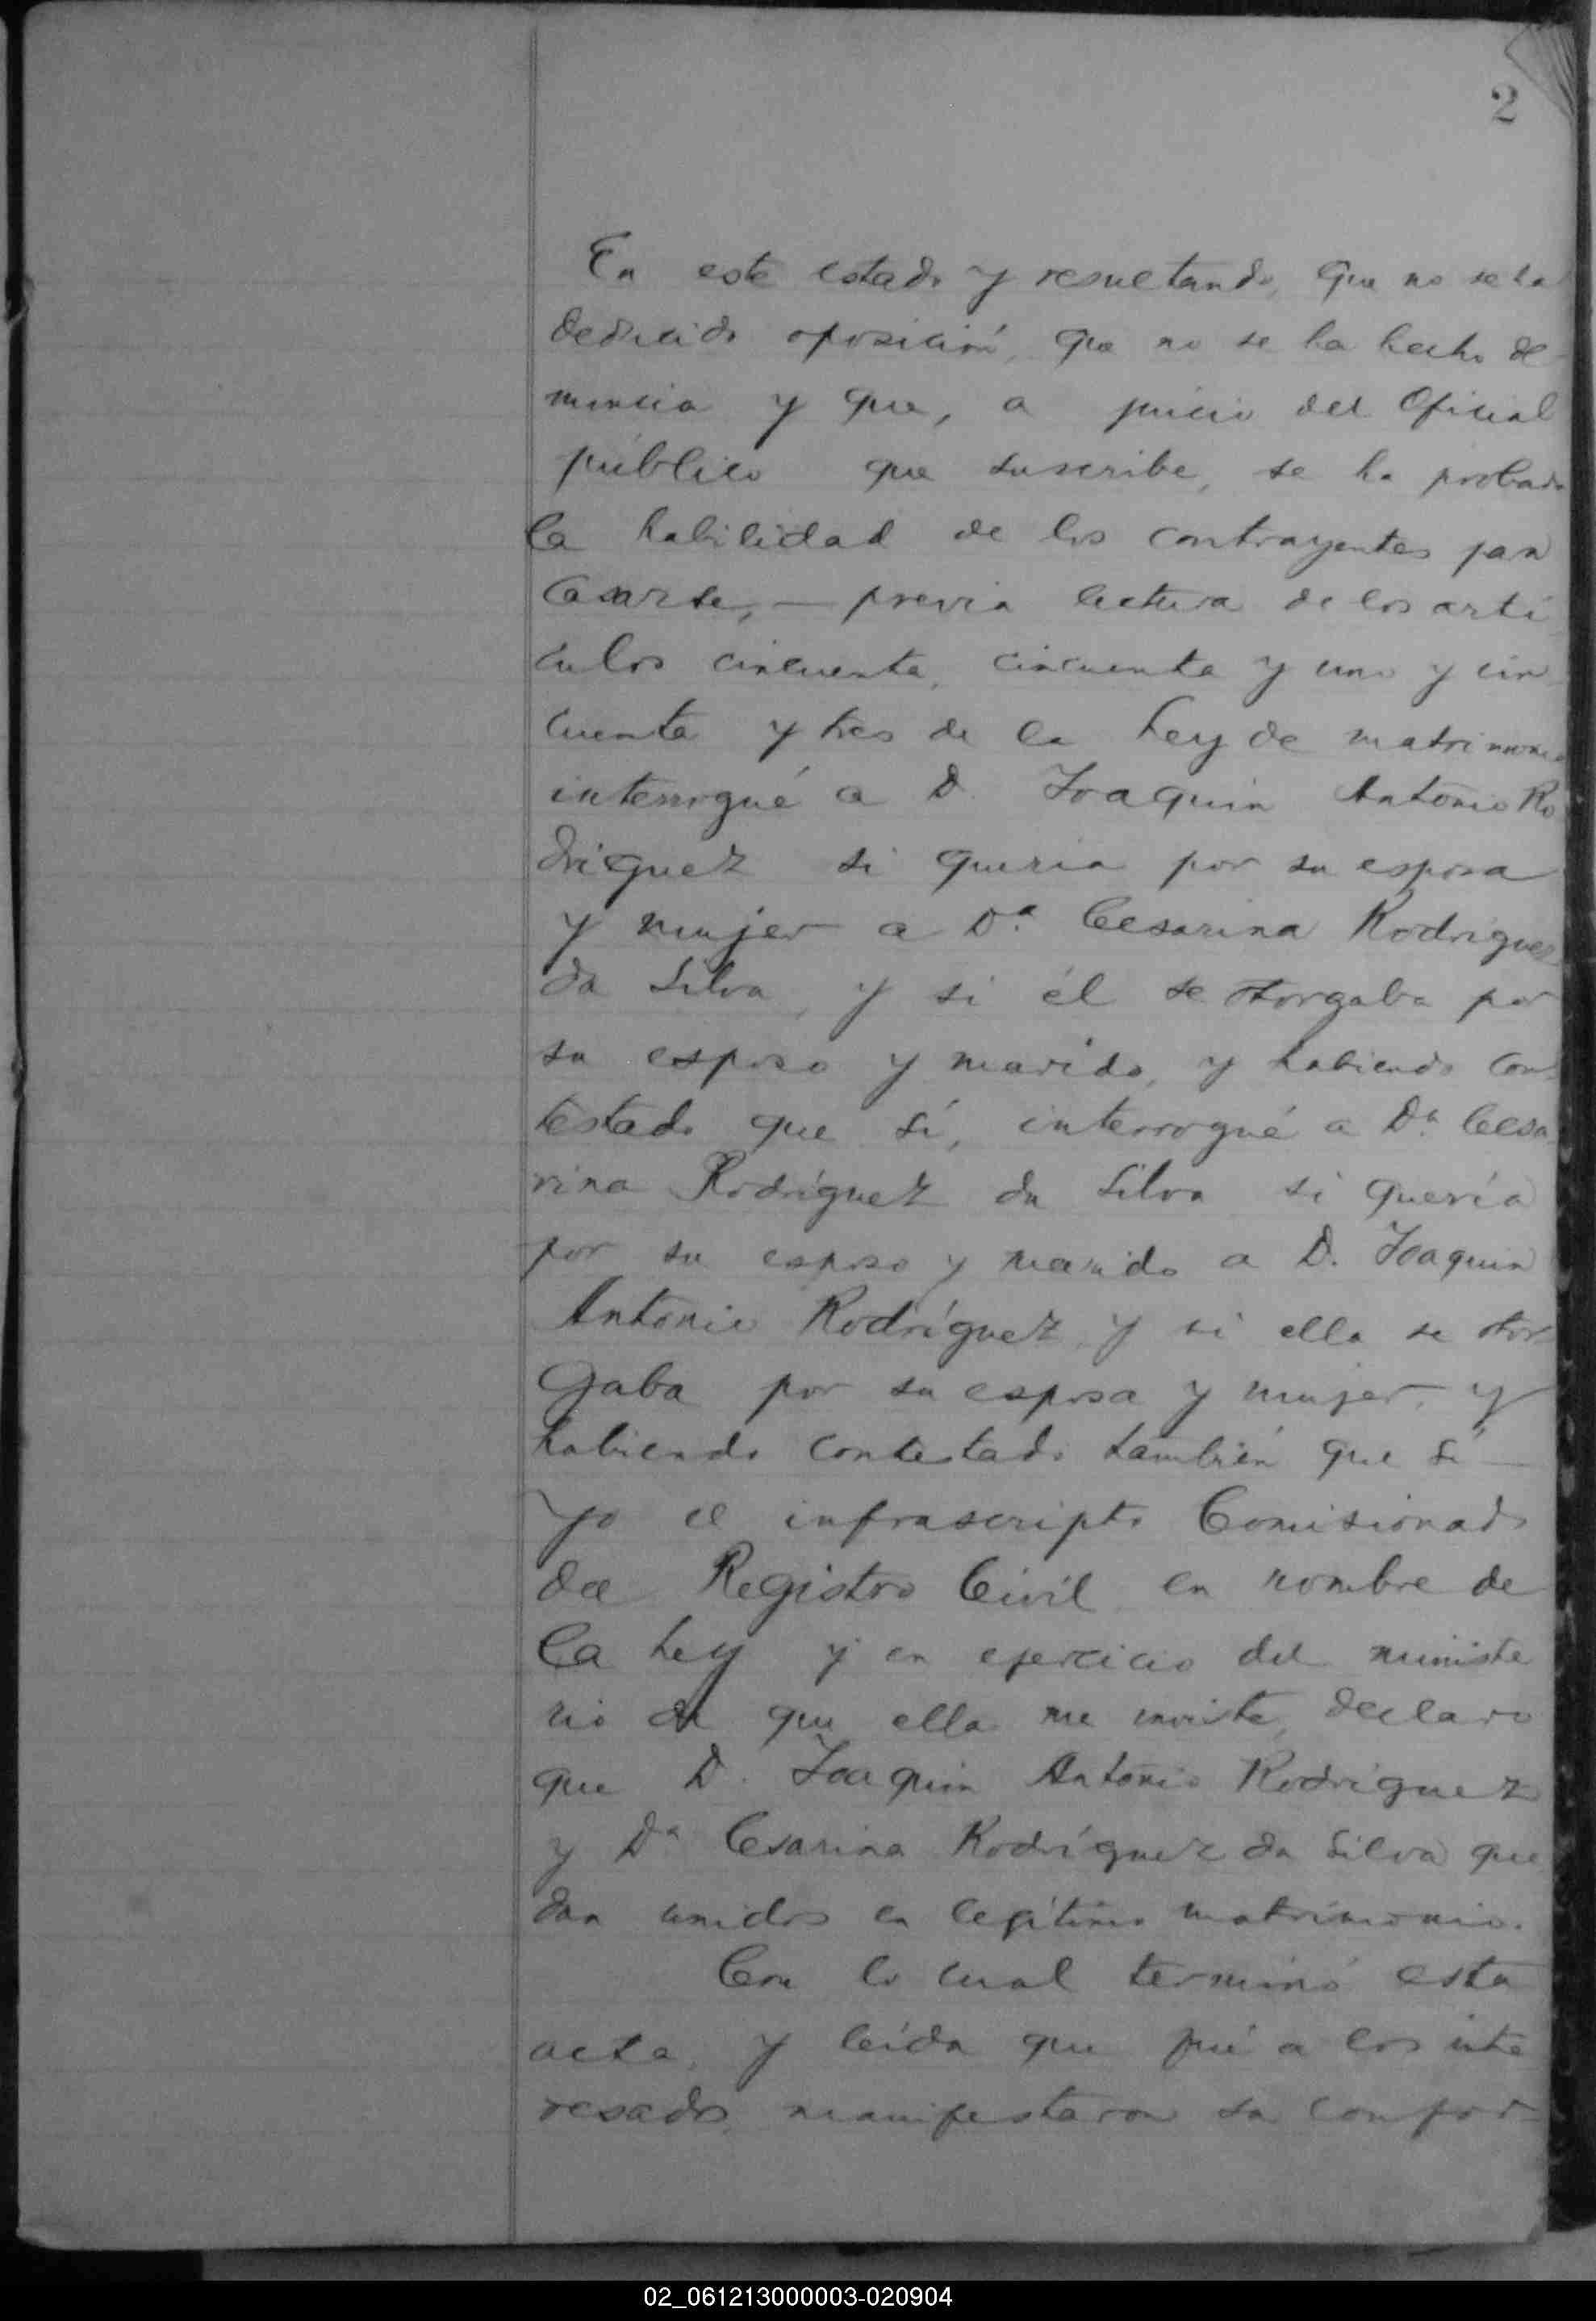 2
En este estado y resultando, que no se ha
deducido oposición, que no se ha hecho de
nuncia y que, a juicio del Oficial
público que suscribe, se ha probado
la habilidad de los contrayentes para
casarse, — previa lectura de los artí
culos cincuenta, cincuenta y uno y cin
cuenta y tres de la Ley de matrimonio
interrogué a D. Joaquin Antonio Ro
driguez si queria por su esposa
y mujer a Dª. Cesarina Rodriguez
da Silva, y si él se otorgaba por
su esposo y marido, y habiendo con
testado que sí, interrogué a Dª. Cesa
rina Rodríguez da Silva si quería
por su esposo y marido a D. Joaquin
Antonio Rodríguez y si ella se otor
gaba por su esposa y mujer, y
habiendo contestado también que sí —
Yo el infrascripto Comisionado
del Registro Civil en nombre de
la Ley y en ejercicio del ministe
rio de que ella me inviste, declaro
que D. Joaquin Antonio Rodriguez
y Dª Cesarina Rodríguez da Silva que
dan unidos en legítimo matrimonio.
Con lo cual terminó esta
acta, y leída que fué a los inte
resados, manifestaron su confor
02_061213000003-020904